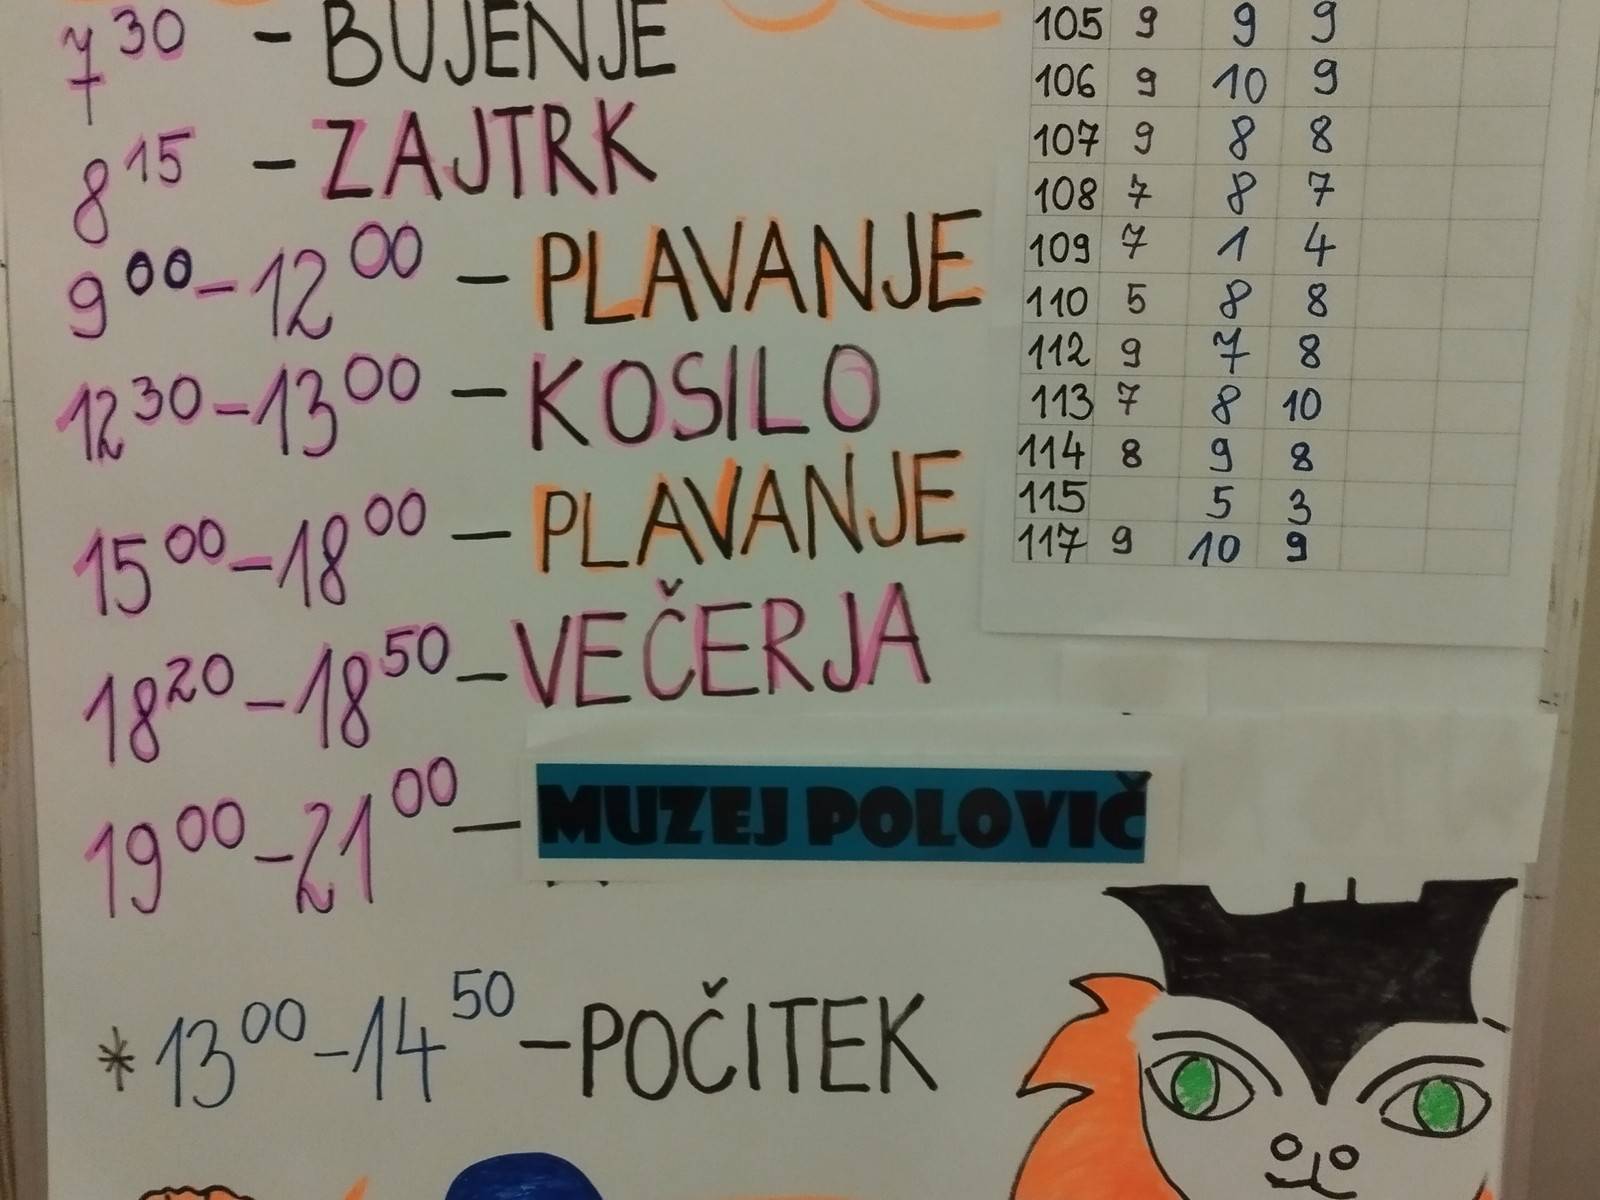 7 30 - BUJENJE
8 15 - ZAJTRK
9 00 - 12 00 - PLAVANJE
12 30 - 13 00 - KOSILO
15 00 - 18 00 - PLAVANJE
18 20 - 18 50 - VEČERJA
19 00 - 21 00 - MUZEJ POLOVIČ
* 13 00 - 14 50 - POČITEK
105 9 9 9
106 9 10 9
107 9 8 8
108 7 8 7
109 7 1 4
110 5 8 8
112 9 7 8
113 7 8 10
114 8 9 8
115 5 3
117 9 10 9